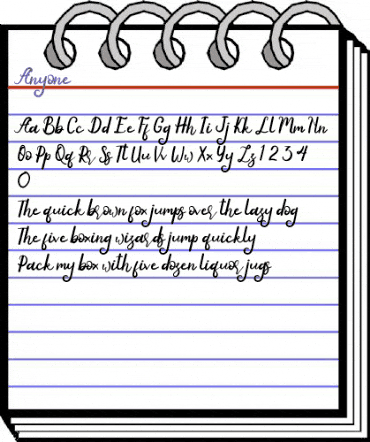 Anyone
Aa Bb Cc Dd Ee Ff Gg Hh Ii Jj Kk Ll Mm Nn
Oo Pp Qq Rr Ss Tt Uu Vv Ww Xx Yy Zz 1 2 3 4
0
The quick brown fox jumps over the lazy dog
The five boxing wizards jump quickly
Pack my box with five dozen liquor jugs